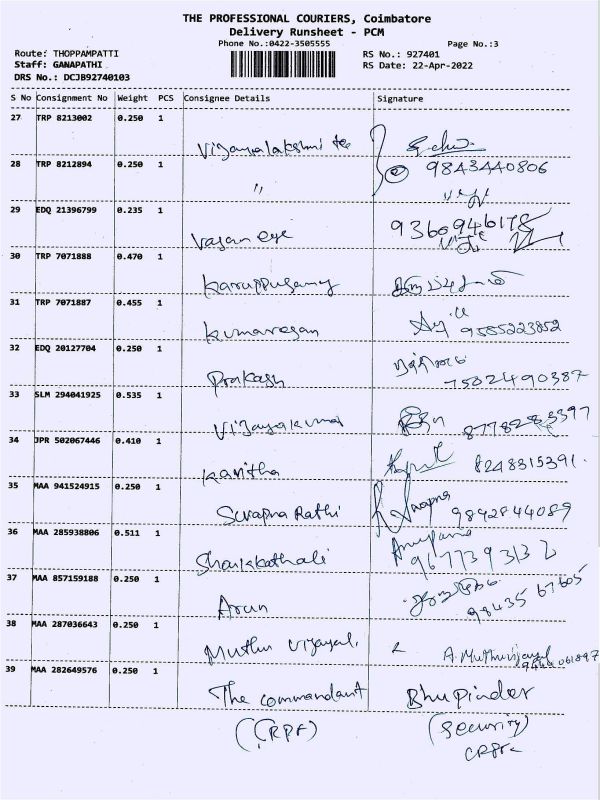 THE PROFESSIONAL COURIERS, Coimbatore
Delivery Runsheet - PCM
Phone No.:0422-3505555
Page No.:3
Route: THOPPAMPATTI
RS No.: 927401
Staff: GANAPATHI
RS Date: 22-Apr-2022
DRS No.: DCJB92740103
S No Consignment No Weight PCS Consignee Details Signature
27 TRP 8213002 0.250 1
Vijayalakshmi
28 TRP 8212894 0.250 1 9843440806
"
29 EDQ 21396799 0.235 1
Vasan eye
30 TRP 7071888 0.470 1
Karuppusamy
31 TRP 7071887 0.455 1
Kumaresan 9585223852
32 EDQ 20127704 0.250 1
Prakash 7502490387
33 SLM 294041925 0.535 1
Vijayakumar
34 JPR 502067446 0.410 1
Kavitha 8248315391.
35 MAA 941524915 0.250 1
Swapna Rathi Swapna 9842844089
36 MAA 285938806 0.511 1
9677393132
37 MAA 857159188 0.250 1
Arun 98435 67605
38 MAA 287036643 0.250 1
Muthu Vijayal. A. Muthuvijayal
39 MAA 282649576 0.250 1
The commandant Bhupinder
(CRPF) (Security)